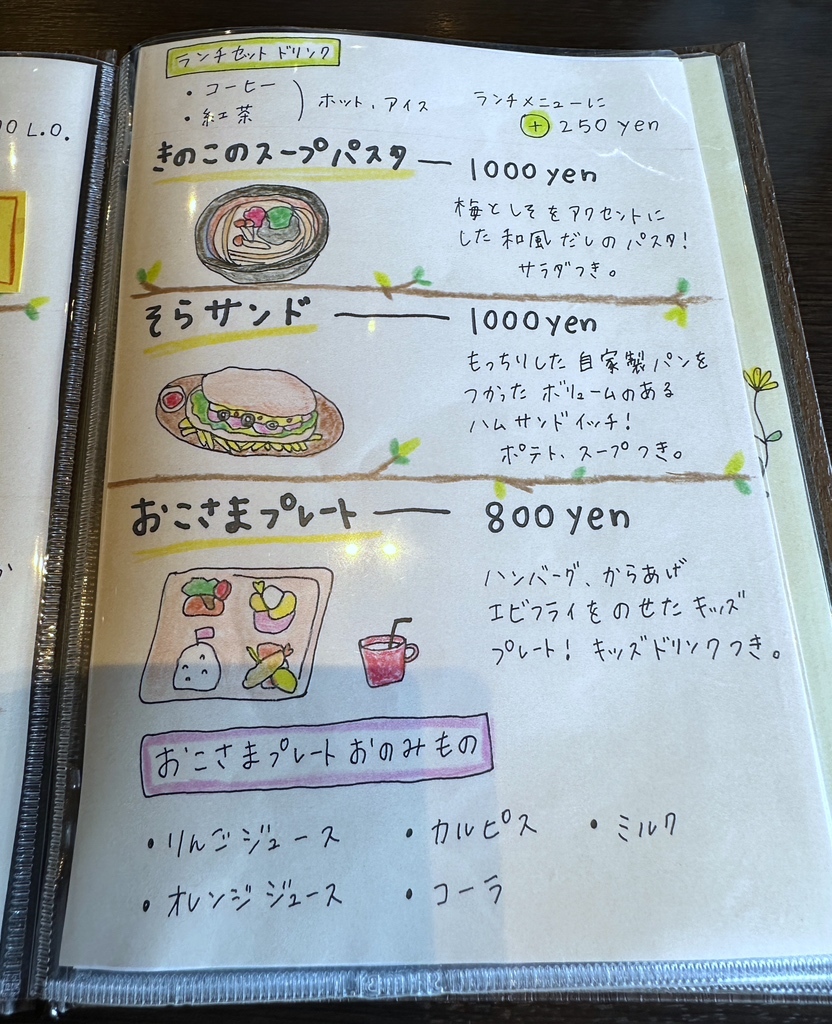 00 L.O.
ランチセットドリンク
・コーヒー
・紅茶
ホット、アイス
ランチメニューに
+ 250 yen
きのこのスープパスタ — 1000 yen
梅としそをアクセントに
した和風だしのパスタ!
サラダつき。
そらサンド — 1000 yen
もっちりした自家製パンを
つかったボリュームのある
ハムサンドイッチ!
ポテト、スープつき。
おこさまプレート — 800 yen
ハンバーグ、からあげ
エビフライをのせたキッズ
プレート! キッズドリンクつき。
おこさまプレートおのみもの
・りんごジュース ・カルピス ・ミルク
・オレンジジュース ・コーラ